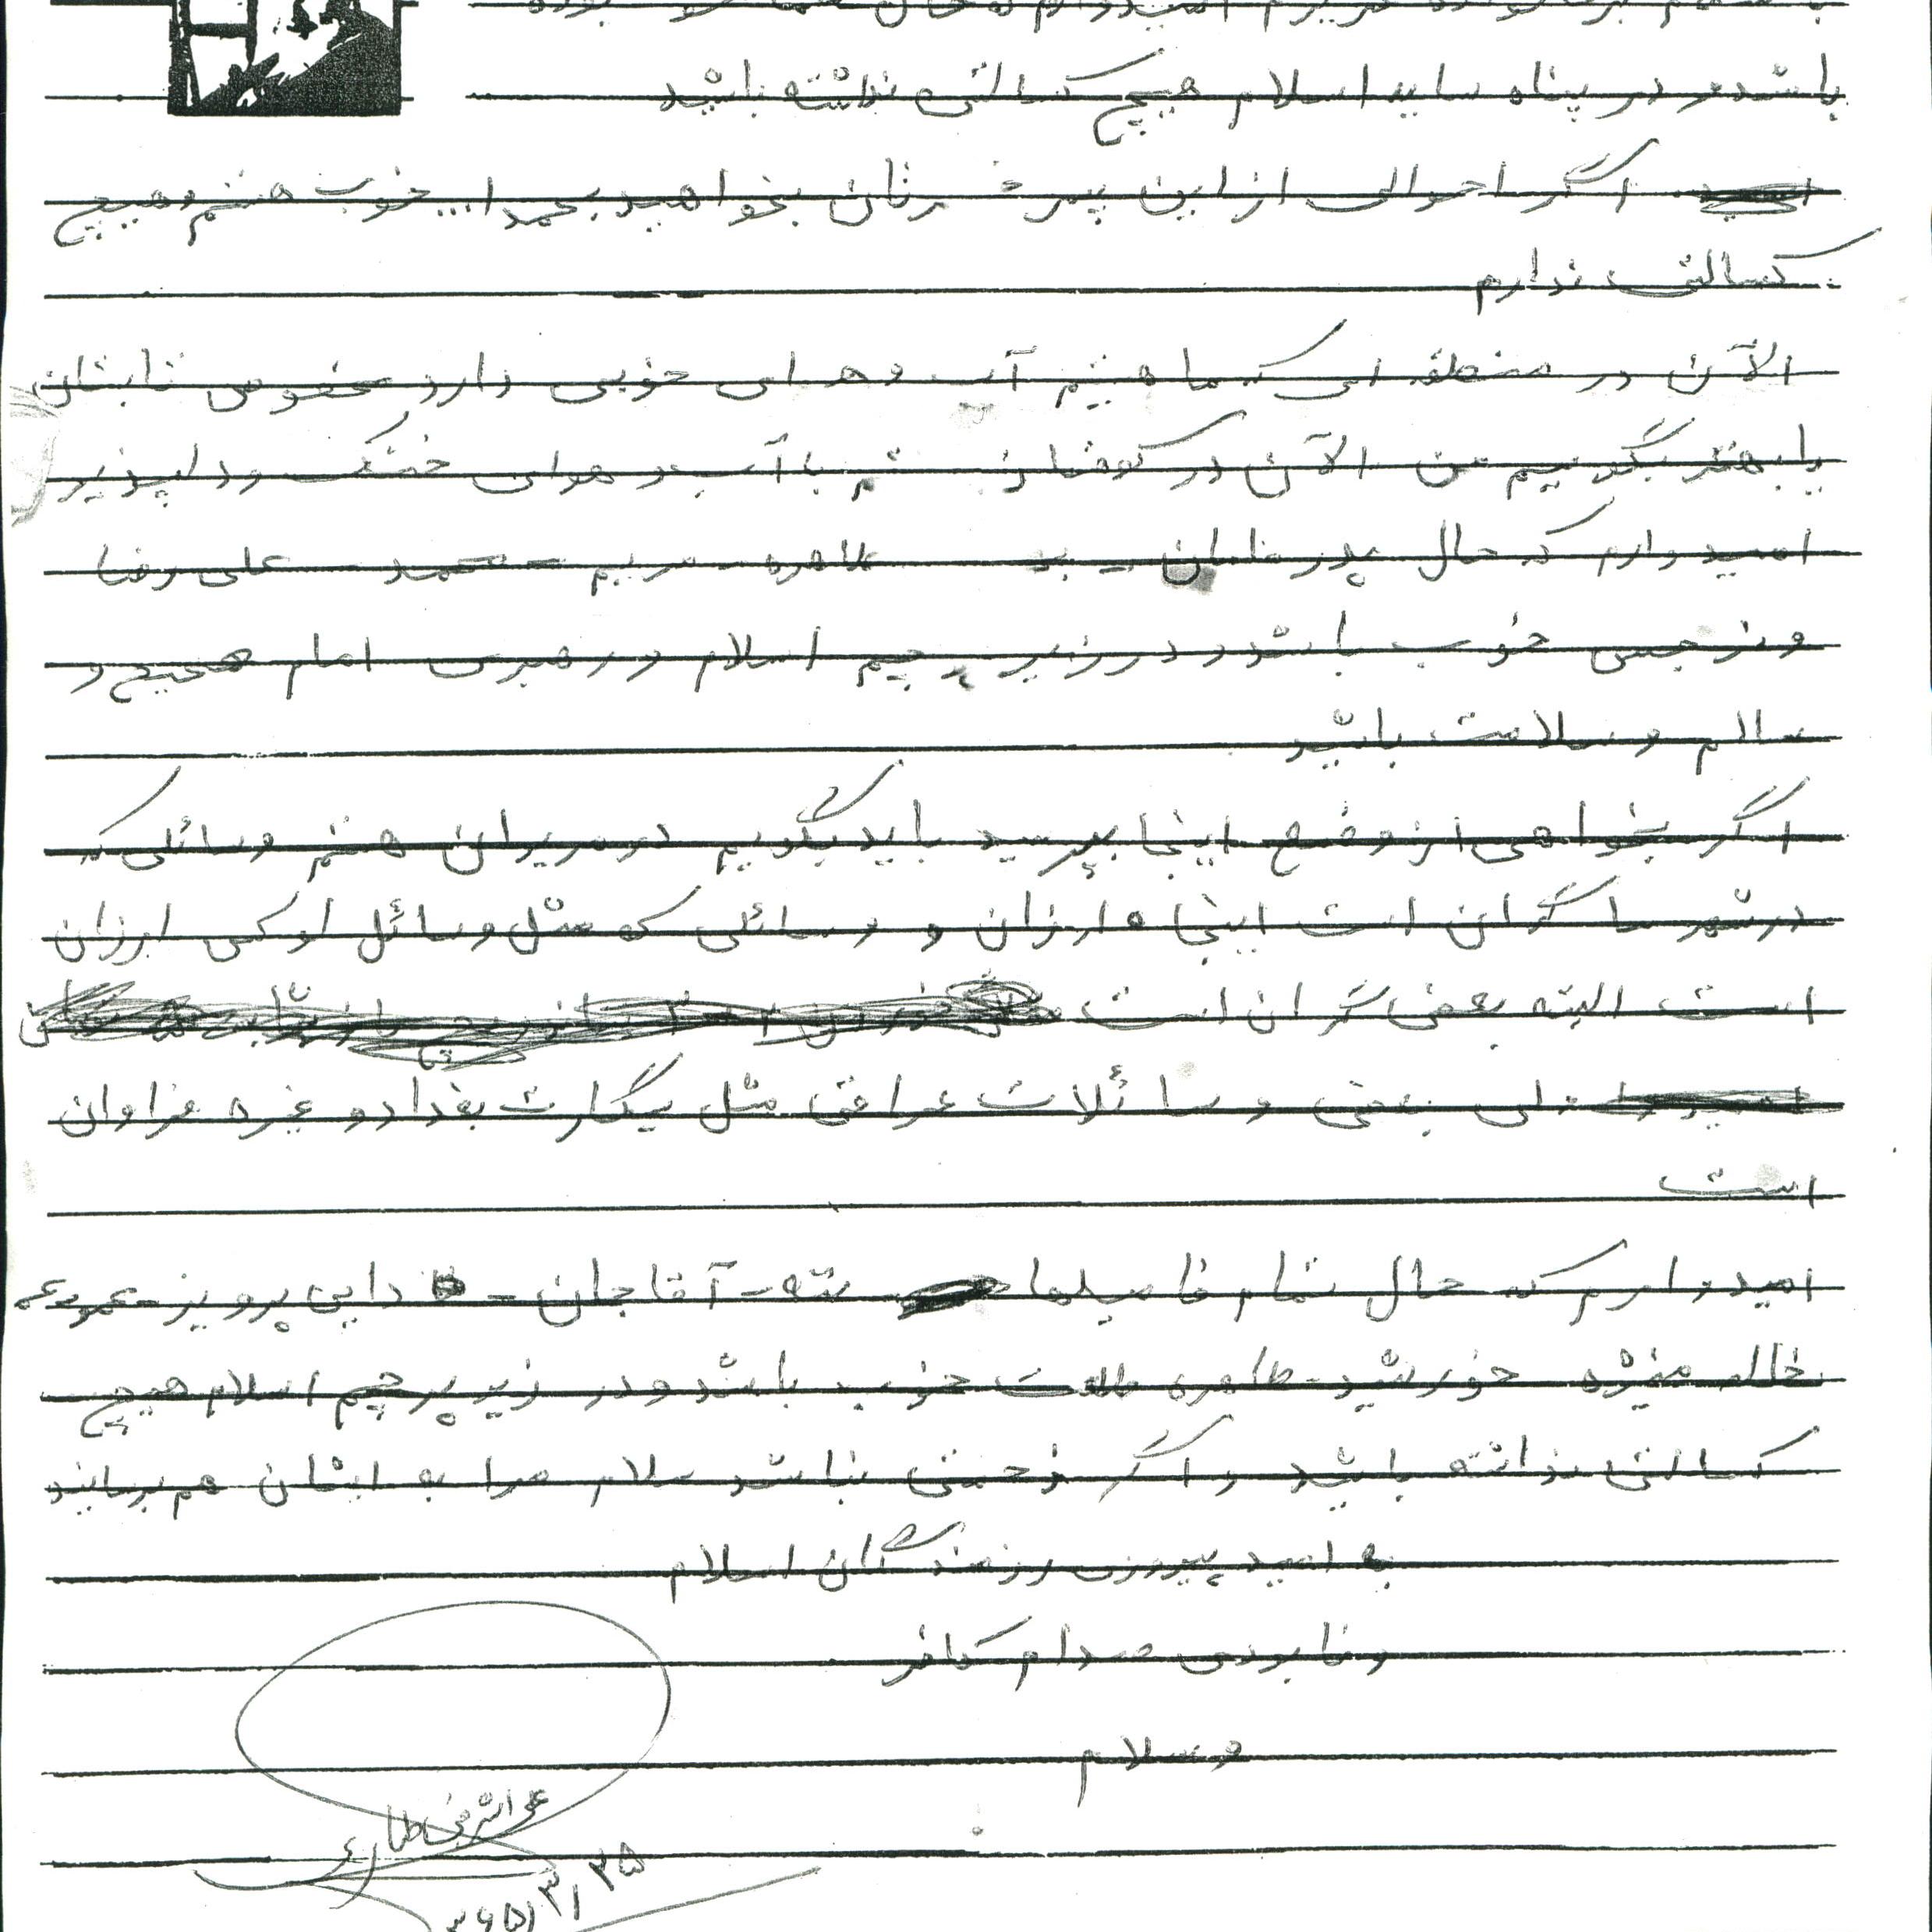 باشد و در پناه سایه اسلام هیچ کسالتی نداشته باشید
اگر احوالی از این پسرتان بخواهید بحمدا... خوب هستم و هیچ
کسالتی ندارم
الآن در منطقه ای که ما هستیم آب و هوای خوبی دارد مخصوص تابستان
یا بهتر بگوییم من الآن در کوهستان با آب و هوای خشک و دلپذیر
امیدوارم که حال پدر مامان طاهره - مریم - محمد - علی رضا
و نرجسی خوب باشد و در زیر پرچم اسلام و رهبری امام صحیح و
سالم و سلامت باشید
اگر بخواهی از وضع اینجا بپرسید باید بگویم در مریوان هستم وسائلی که
در شهر ما گران است اینجا ارزان و وسائلی که مثل وسائل لوکس ارزان
است البته بعضی گران است
ولی بعضی وسائلات عراقی مثل سیگارت بغداد و غیره فراوان
است
امیدوارم که حال تمام فامیلها ننه - آقاجان - دایی پرویز - عمو
خاله منیژه خورشید - طاهره طلعت خوب باشد و در زیر پرچم اسلام هیچ
کسالتی نداشته باشید و اگر زحمتی نباشد سلام مرا به ایشان هم برسانید
به امید پیروزی رزمندگان اسلام
و نابودی صدام کافر
وسلام
۶۵/۳/۲۵